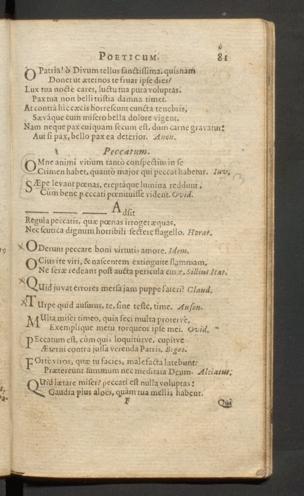 POETICUM. 81
O Patria! ô Divum tellus sanctissima, quisnam
Donet ut æternos te fruar ipse dies?
Lux tua nocte caret, luctu tua pura voluptas.
Pax tua non belli tristia damna timet.
At contrà hic cæcis horrescunt cuncta tenebris,
Sævaque cum misero bella dolore vigent.
Nam neque pax cuiquam secum est, dum carne gravatur:
Aut si pax, bello pax ea deterior.
Peccatum.
OMne animi vitium tantò conspectius in se
Crimen habet, quantò major qui peccat habetur. Iuv.
SÆpe levant pœnas, ereptaque lumina reddunt,
Cum bene peccati pœnituisse vident. Ovid.
Adsit
Regula peccatis, quæ pœnas irroget æquas,
Nec scutica dignum horribili sectere flagello. Horat.
ODerunt peccare boni virtutis amore. Idem.
OCius ite viri, & nascentem extinguite flammam,
Ne seræ redeant post aucta pericula curæ. Sillius Ital.
QUid juvat errores mersa jam puppe fateri? Claud.
TUrpe quid ausurus, te, sine teste, time. Auson.
MUlta miser timeo, quia feci multa proterve,
Exemplique metu torqueor ipse mei. Ovid.
PEccatum est, cùm quis loquiturve, cupitve
Æterni contra jussa verenda Patris.
FOrte viros, quæ tu facies, malefacta latebunt:
Prætereunt summum nec meditata Deum. Alciatus.
QUid lætare miser? peccati est nulla voluptas:
Gaudia plus aloës, quàm tua mellis habent.
F Qui